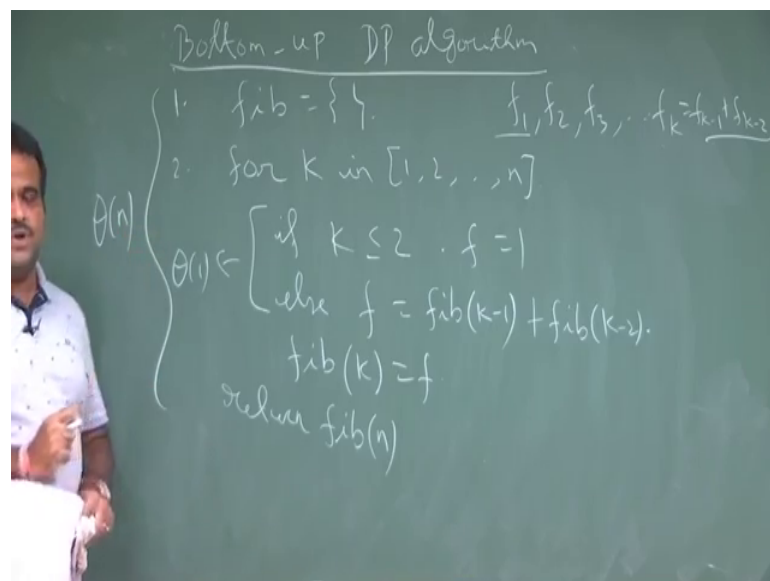 Bottom-up DP algorithm
1. fib = { }.
f₁, f₂, f₃, .. fₖ=fₖ₋₁+fₖ₋₂
2. for K in [1, 2, . . , n]
θ(n)
θ(1) ← if K ≤ 2 . f = 1
else f = fib(k-1) + fib(k-2).
fib(k) = f
return fib(n)